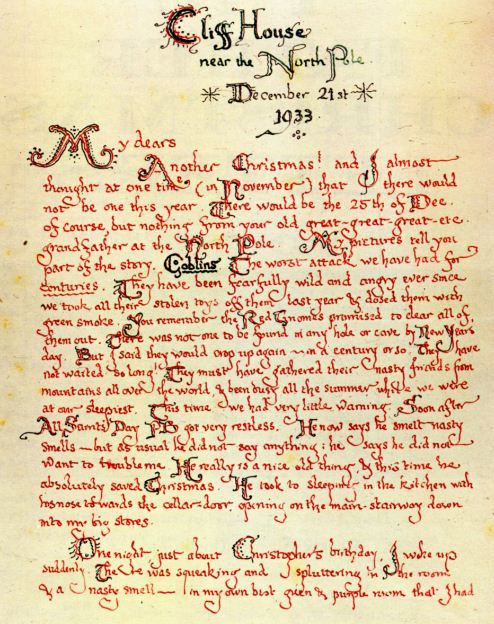 Cliff House
near the North Pole.
December 21st
1933.
My dears
Another Christmas! and I almost
thought at one time (in November) that there would
not be one this year. There would be the 25th of Dec.
of course, but nothing from your old great-great-great-etc.
grandfather at the North Pole. My pictures tell you
part of the story. Goblins. The worst attack we have had for
centuries. They have been fearfully wild and angry ever since
we took all their stolen toys off them last year & dosed them with
green smoke. You remember the Red Gnomes promised to clear all of
them out. There was not one to be found in any hole or cave by New Years
day. But I said they would crop up again — in a century or so. They have
not waited so long! They must have gathered their nasty friends from
mountains all over the world, & been busy all the summer while we were
at our sleepiest. This time we had very little warning. Soon after
All Saints' Day PB got very restless. He now says he smelt nasty
smells — but as usual he did not say anything: he says he did not
want to trouble me. He really is a nice old thing, & this time he
absolutely saved Christmas. He took to sleeping in the kitchen with
his nose towards the cellar-door, opening on the main-stairway down
into my big stores.
One night, just about Christopher's birthday, I woke up
suddenly. There was squeaking and spluttering in the room
& a nasty smell — in my own best green & purple room that I had